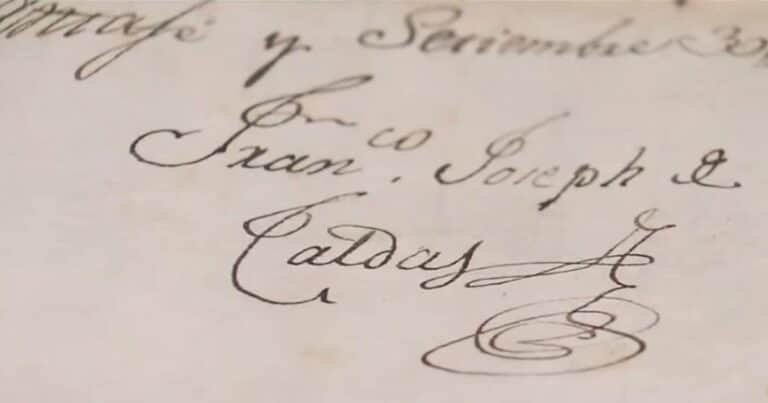 Santafé y Setiembre 30
Fran.co Joseph de
Caldas